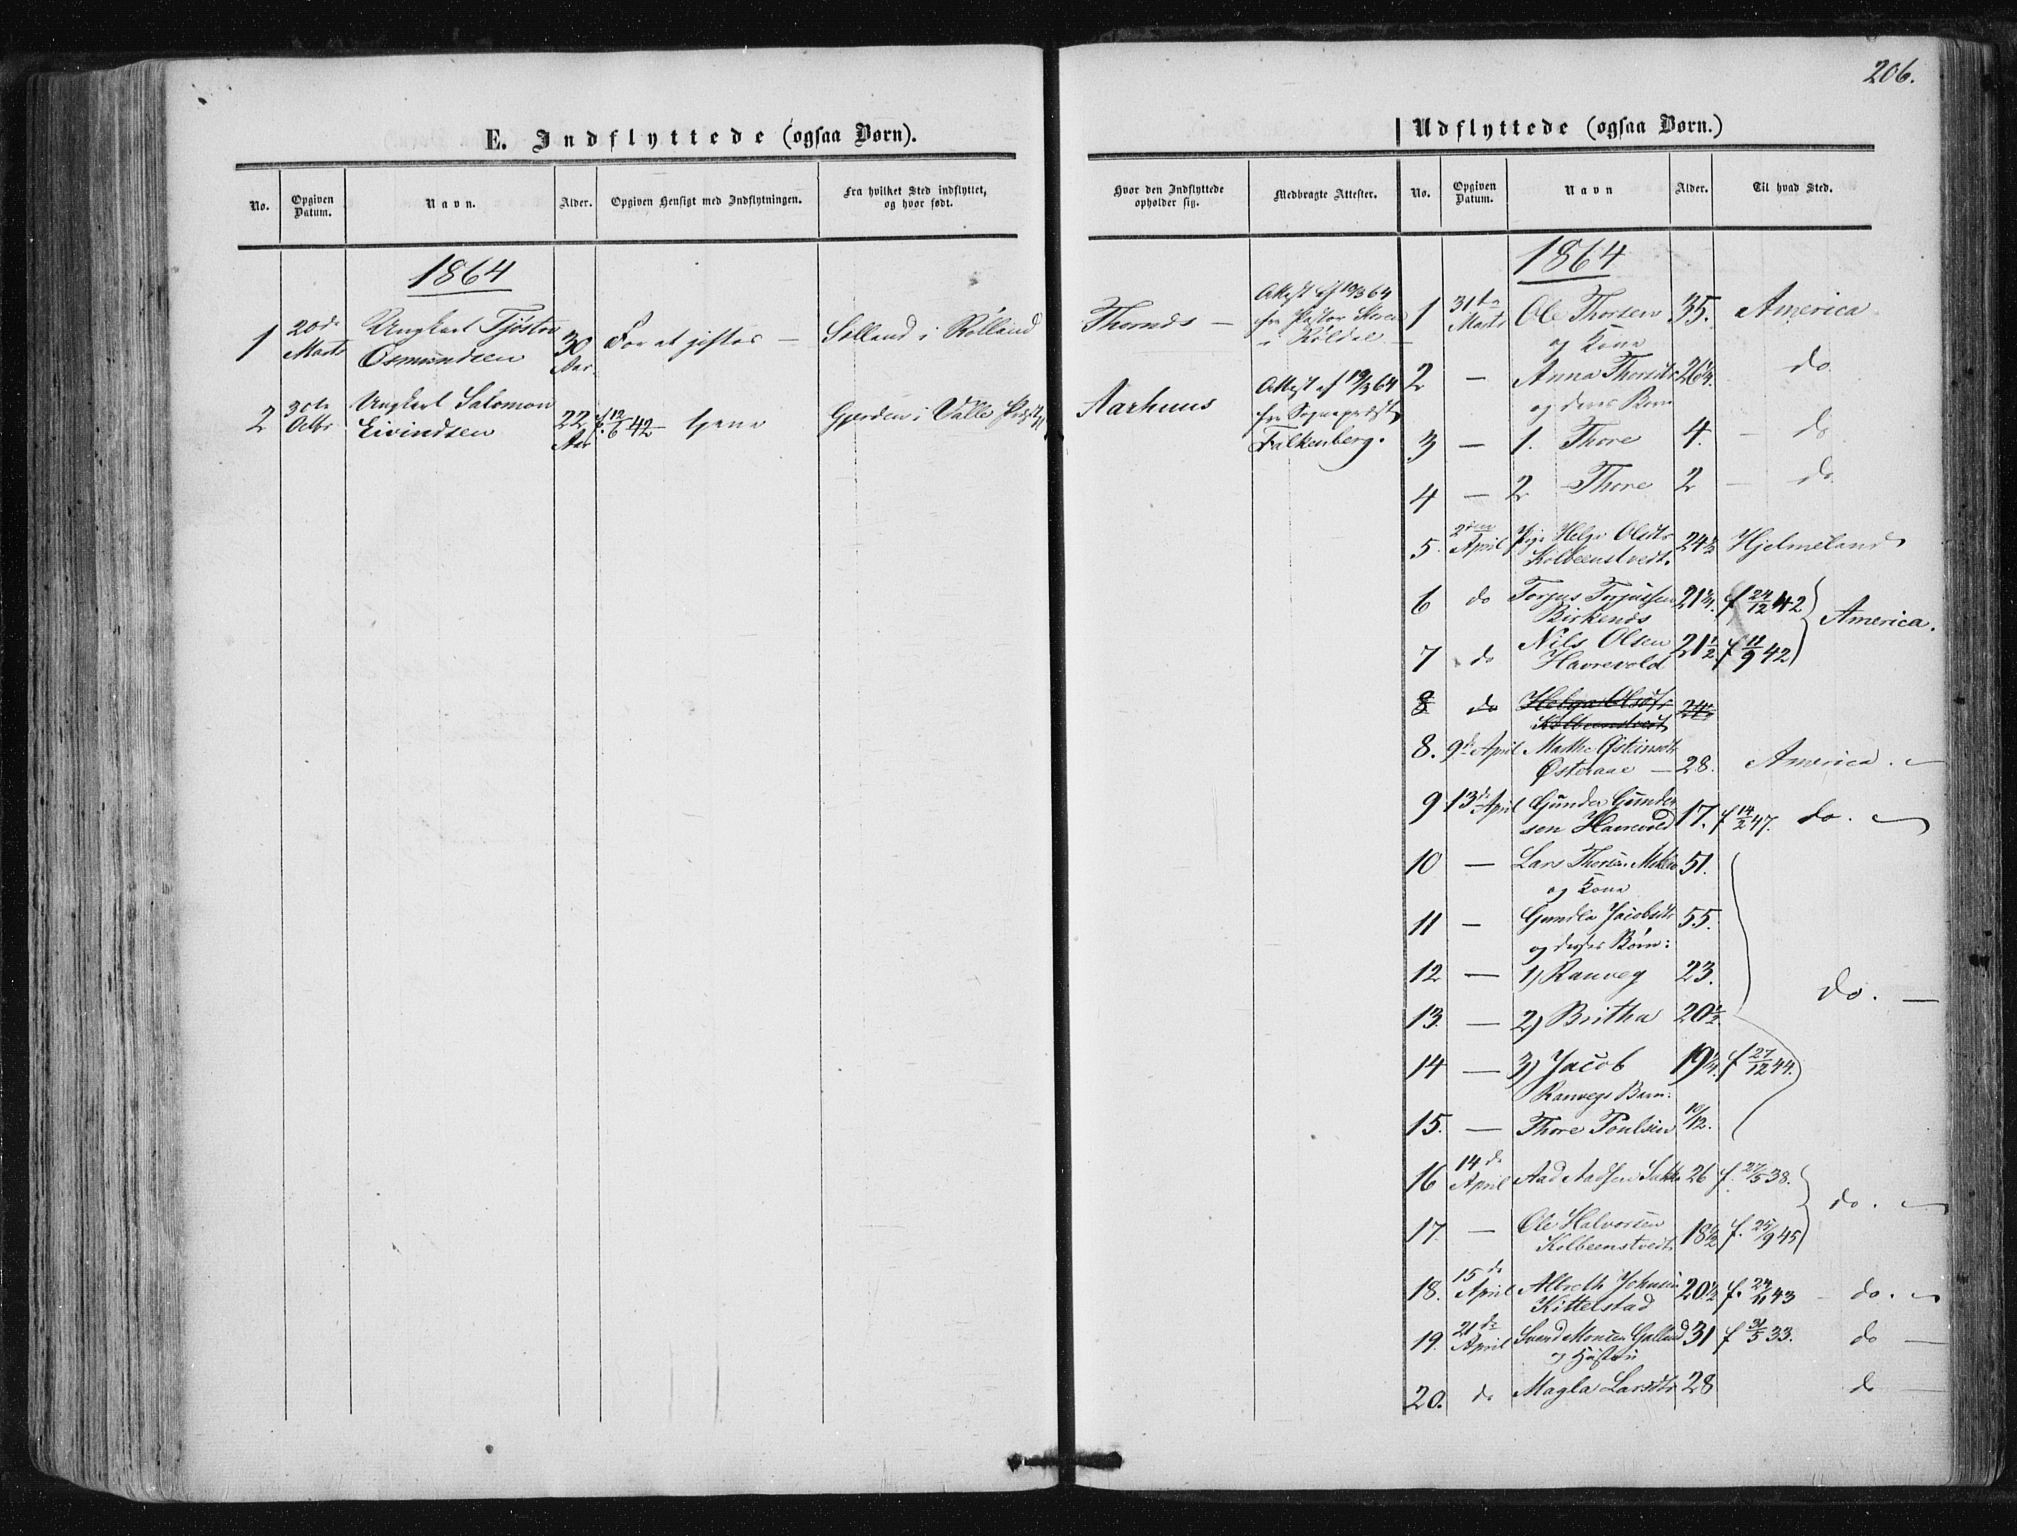 206.
E. Indflyttede (ogsaa Børn).
No.
Opgiven Datum.
Navn.
Alder.
Opgiven Hensigt med Indflytningen.
Fra hvilket Sted indflyttet, og hvor født.
Hvor den Indflyttede opholder sig.
Medbragte Attester.
1864
1 20de Marts Ungkarl Tjøstov Osmundsen 30 Aar. For at giftes — i Røldal Attest af 19/3 64 fra Pastor i Røldal
2 30te Octbr Ungkarl Salomon Eivindsen 22 Aar f. 12/6 42 — tjene i Valle Aarhuus Attest af 19/3 64 fra Sognepræst Falkenberg.
Udflyttede (ogsaa Børn.)
No.
Opgiven Datum.
Navn
Alder.
Til hvad Sted.
1864
1 31te Marts Ole Thorsen 35. America
og Kone
2 — Anna Thorsdtr 26 1/4. do
og deres Børn
3 — 1. Thore 4. — do
4 — 2 Thore 2 — do
5. 2den April Pige Helge Olsdtr Kolbeenstvedt. 24 1/2 Hjelmeland
6 do Torjus Torjussen Birkenes 21 1/4. f 24/12 42 America.
7 do Nils Olsen Havrevold 21 1/2 f 11/9 42
8 do Helga Olsdtr Kolbeenstvedt 24 1/2
8. 9de April Marthe Østensdtr Østeraae — 28. America. —
9 13de April Gunder Gundersen Havrevold 17. f 14/2 47. do. —
10 — Lars Thorsen 51.
og Kone
11 — Gunild Jacobsdtr 55.
og deres Børn:
12 — 1) Ranveg 23. do. —
13. — 2) Britha 20 1/2
14 — 3) Jacob 19 1/4. f 27/12 44.
Ranvegs Barn:
15. — Thore Poulsen 10/12.
16 14de April Aad Aadsen 26 f. 27/5 38.
do. —
17 — Ole Halvorsen Kolbeenstvedt 18 1/2 f. 25/9 45
18. 15de April Albreth Johnsen Kittelstad 20 1/2 f. 24/11 43 — do. —
19. 21de April Svend Monsen 31 f 31/5 33. do —
og Hustru
20. do Magla Larsdtr 28 do —